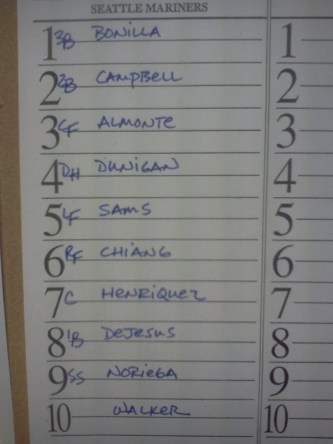 SEATTLE MARINERS
1 3B BONILLA 1
2 2B CAMPBELL 2
3 CF ALMONTE 3
4 DH DUNIGAN 4
5 LF SAMS 5
6 RF CHIANG 6
7 C HENRIQUEZ 7
8 1B DEJESUS 8
9 SS NORIEGA 9
10 WALKER 10